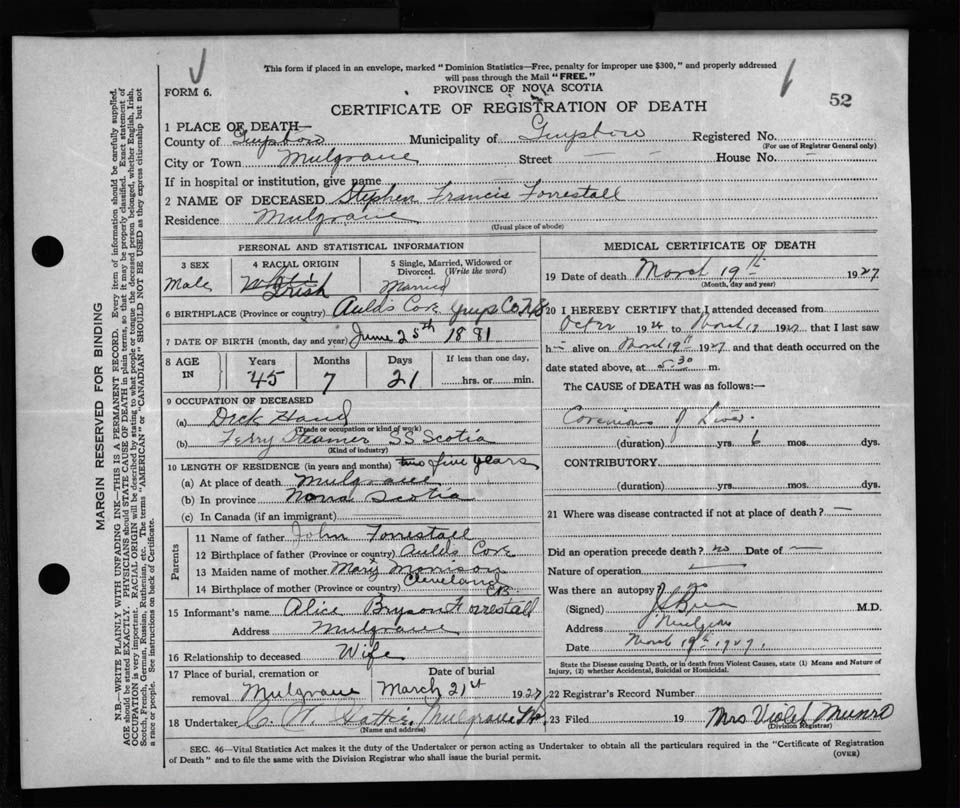 This form if placed in an envelope, marked "Dominion Statistics—Free, penalty for improper use $300," and properly addressed
will pass through the Mail "FREE."
FORM 6.
PROVINCE OF NOVA SCOTIA
52
CERTIFICATE OF REGISTRATION OF DEATH
1 PLACE OF DEATH—
County of Guysboro Municipality of Guysboro Registered No.
(For use of Registrar General only)
City or Town Mulgrave Street — — House No. —
If in hospital or institution, give name
2 NAME OF DECEASED Stephen Francis Forrestall
Residence Mulgrave
(Usual place of abode)
PERSONAL AND STATISTICAL INFORMATION
3 SEX
Male
4 RACIAL ORIGIN
White
Irish
5 Single, Married, Widowed or
Divorced. (Write the word)
Married
6 BIRTHPLACE (Province or country) Aulds Cove Guys Co. N.S.
7 DATE OF BIRTH (month, day and year) June 25th 1881
8 AGE IN
Years Months Days If less than one day,
45 7 21 hrs. or min.
9 OCCUPATION OF DECEASED
(a) Deck Hand
(Trade or occupation or kind of work)
(b) Ferry Steamer SS Scotia
(Kind of industry)
10 LENGTH OF RESIDENCE (in years and months) two five years
(a) At place of death Mulgrave
(b) In province Nova Scotia
(c) In Canada (if an immigrant)
Parents
11 Name of father John Forrestall
12 Birthplace of father (Province or country) Aulds Cove
13 Maiden name of mother Mary Morrison
14 Birthplace of mother (Province or country) Cleveland C.B.
15 Informant's name Alice Bryson Forrestall
Address Mulgrave
16 Relationship to deceased Wife
17 Place of burial, cremation or removal Mulgrave
Date of burial March 21st 1927
18 Undertaker Mulgrave
(Name and address)
MEDICAL CERTIFICATE OF DEATH
19 Date of death March 19th 1927
(Month, day and year)
20 I HEREBY CERTIFY that I attended deceased from
1926 to March 19 1927 that I last saw
h alive on March 19th 1927 and that death occurred on the
date stated above, at 5-30 m.
The CAUSE of DEATH was as follows:—
of Liver.
(duration) yrs. 6 mos. dys.
CONTRIBUTORY
(duration) yrs. mos. dys.
21 Where was disease contracted if not at place of death? —
Did an operation precede death? no Date of —
Nature of operation —
Was there an autopsy? no
(Signed) M.D.
Address Mulgrave
Date March 19th 1927.
State the Disease causing Death, or in death from Violent Causes, state (1) Means and Nature of
Injury, (2) whether Accidental, Suicidal or Homicidal.
22 Registrar's Record Number
23 Filed 19 Mrs Violet Munro
(Division Registrar)
SEC. 46—Vital Statistics Act makes it the duty of the Undertaker or person acting as Undertaker to obtain all the particulars required in the "Certificate of Registration
of Death" and to file the same with the Division Registrar who shall issue the burial permit.
(OVER)
MARGIN RESERVED FOR BINDING
N.B.—WRITE PLAINLY WITH UNFADING INK—THIS IS A PERMANENT RECORD. Every item of information should be carefully supplied.
AGE should be stated EXACTLY. PHYSICIANS should STATE CAUSE OF DEATH in plain terms, so that it may be properly classified. Exact statement of
OCCUPATION is very important. RACIAL ORIGIN will be described by stating to what people or tongue the deceased person belonged, whether English, Irish,
Scotch, French, German, Russian, Ruthenian, etc. The terms "AMERICAN" or "CANADIAN" SHOULD NOT BE USED as they express citizenship but not
a race or people. See instructions on back of Certificate.